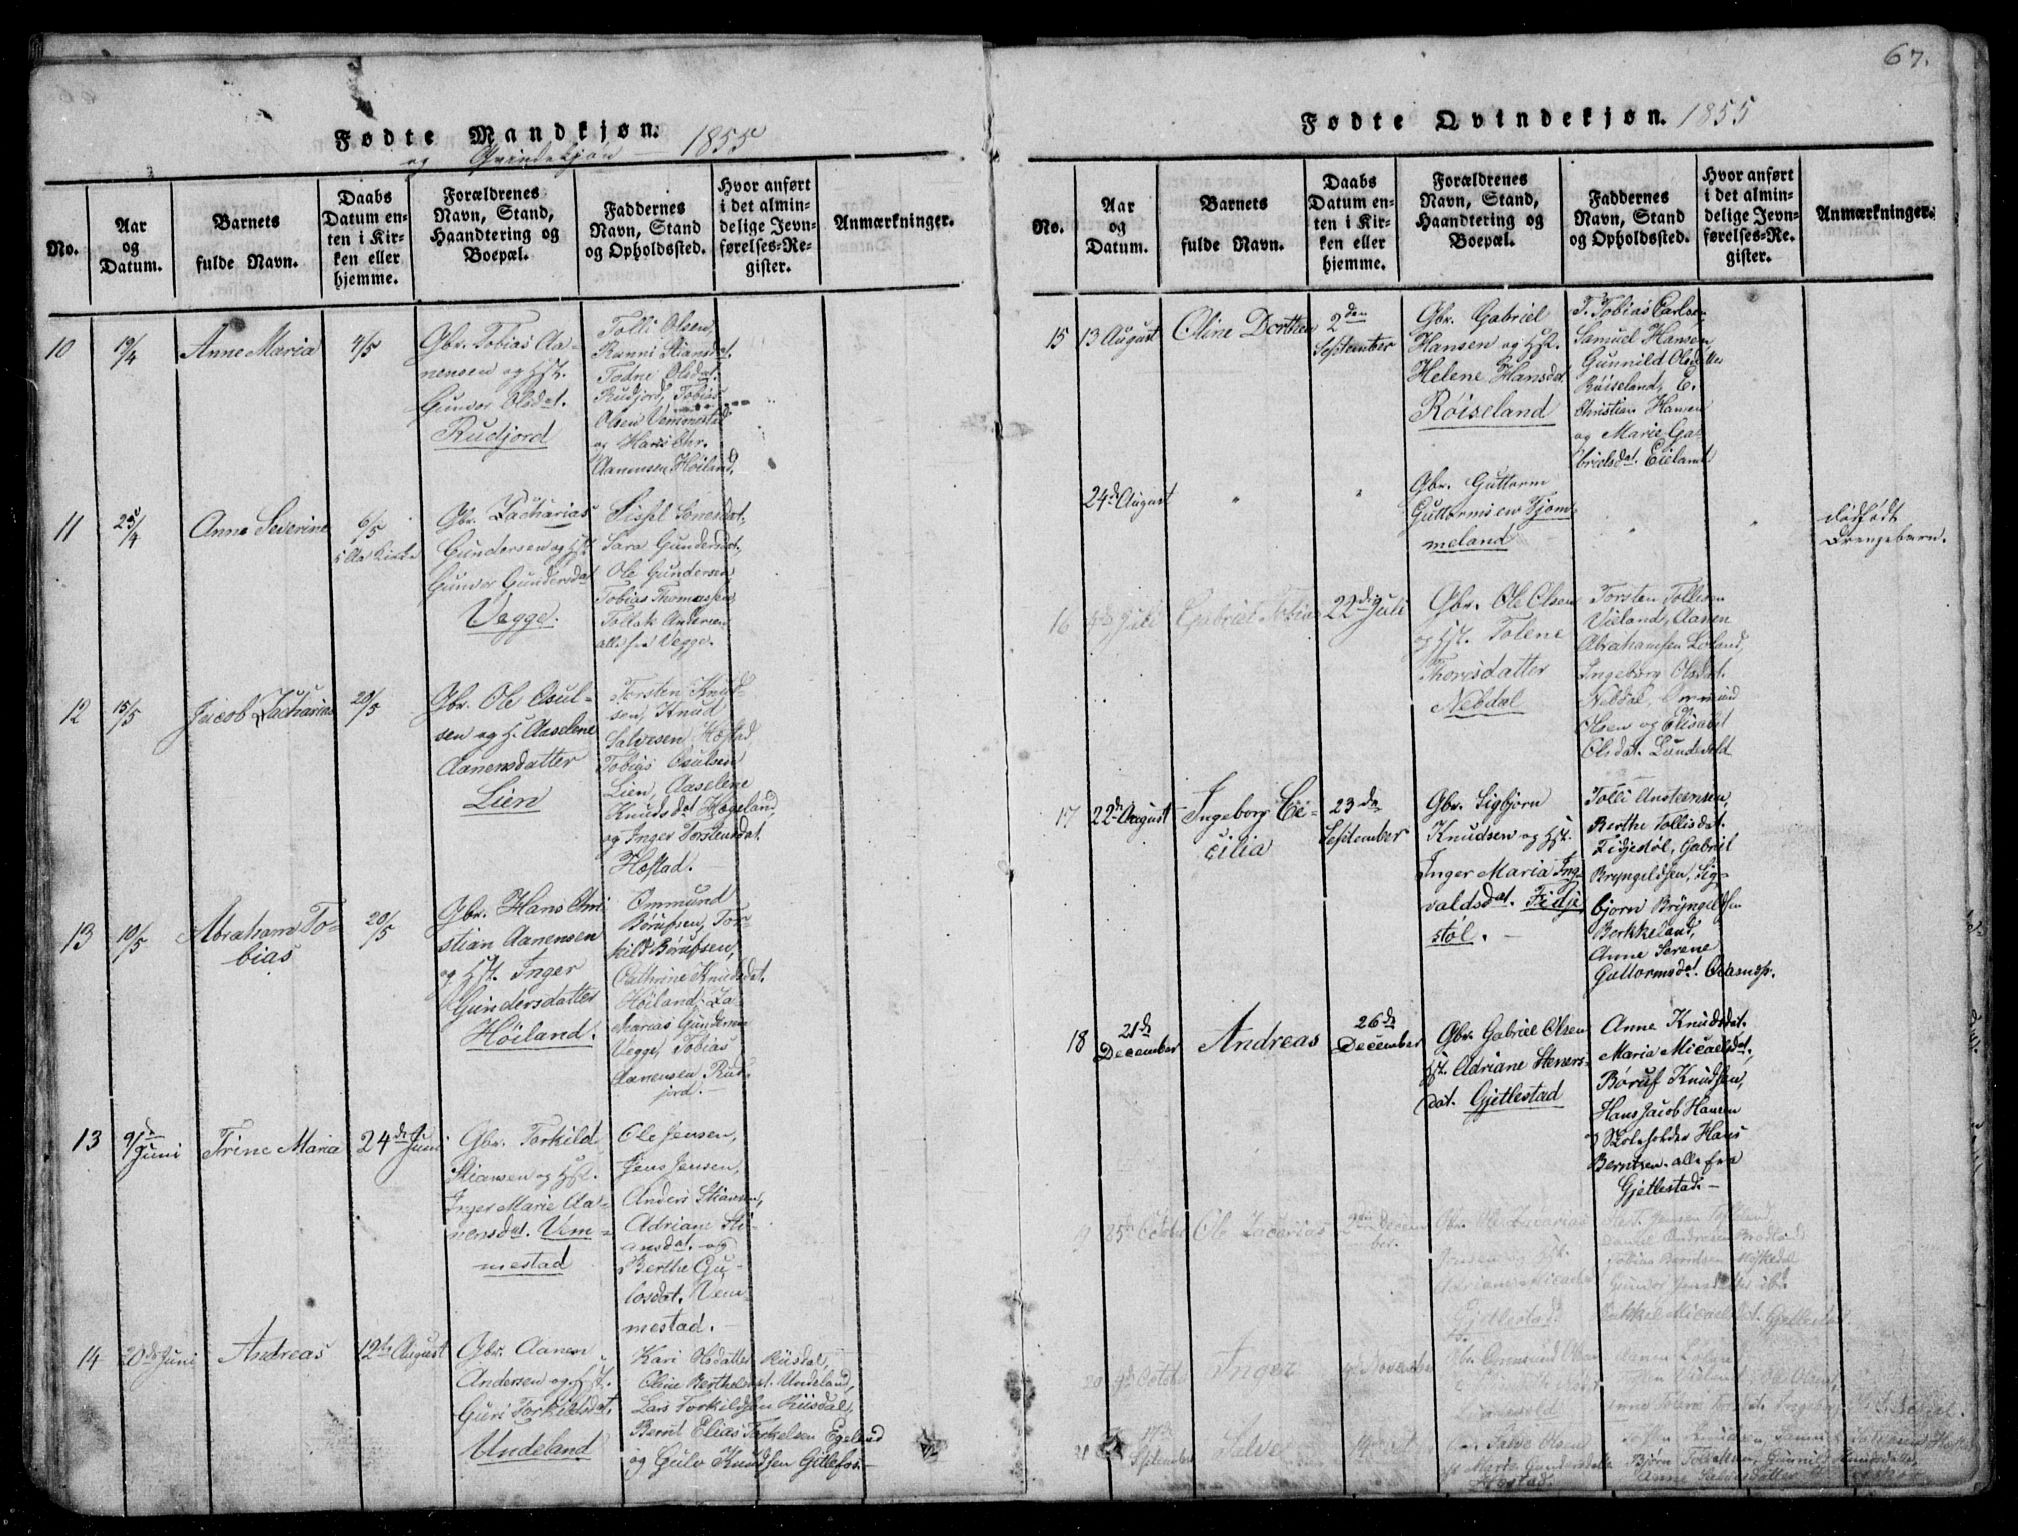 67.
Fødte Mandkjøn.
og Qvindekjøn — 1855
No.
Aar
og
Datum.
Barnets
fulde Navn.
Daabs
Datum en-
ten i Kir-
ken eller
hjemme.
Forældrenes
Navn, Stand,
Haandtering og
Boepæl.
Faddernes
Navn, Stand
og Opholdssted.
Hvor anført
i det almin-
delige Jevn-
førelses-Re-
gister.
Anmærkninger.
10
19/4
Anne Maria
4/5
Gbr. Tobias Aa-
nensen og Hst.
Gunvor Olsdat.
Rudjord
Tolli Olsen,
Ranni Stiansdat.
Todne Olsdat.
Rudjord, Tobias
Olsen Vemmestad
og Hans Chr.
Aanensen Höiland.
11
25/4
Anne Severine
6/5
i Aa Kirke
Gbr. Zacharias
Gundersen og Hst.
Gunvor Gundersdat
Vegge.
Sissel Sønesdat.
Sara Gundersdat.
Ole Gundersen
Tobias Thomassen
Tollak Andersen
alle fra Vegge.
12
15/5
Jacob Zacharias
20/5
Gbr. Ole Osul-
sen og H. Aaselene
Aanensdatter
Lien
Torsten Knud-
sen, Knud
Salvesen Høstad
Tobias Osulsen
Lien, Aaselene
Knudsdat Hægeland,
og Inger Torstensdat.
Høstad. —
13
10/5
Abraham To-
bias
20/5
Gbr. Hans Chri
stian Aanensen
og Hst. Inger
Gundersdatter
Höiland.
Ommund
Børufsen, Tor-
kild Børufsen,
Cathrine Knudsdat.
Höiland, Za-
charias Gundersen
Vegge, Tobias
Aanensen Rud-
jord. —
13
9/de
Juni
Trine Maria
24de Juni
Gbr. Torkild
Stiansen og Hst.
Inger Marie Aa-
nensdat. Vem-
mestad
Ole Jensen,
Jens Jensen,
Anders Stiansen,
Adriane Sti-
ansdat. og
Berthe Gu-
losdat. Vem-
mestad. —
14
20de Juni
Andreas
12te August
Gbr. Aanen
Andersen og Hst.
Guri Torkildsdat.
Undeland
Kari Olsdatter Riisdal,
Oline Berthelsdat. Undeland,
Lars Torkildsen Riisdal,
Bernt Elias Torkelsen Egeland
og Gulv Knudsen Gitlefos. —
Fødte Qvindekjøn. 1855
No.
Aar
og
Datum.
Barnets
fulde Navn.
Daabs
Datum en-
ten i Kir-
ken eller
hjemme.
Forældrenes
Navn, Stand,
Haandtering og
Boepæl.
Faddernes
Navn, Stand
og Opholdssted.
Hvor anført
i det almin-
delige Jevn-
førelses-Re-
gister.
Anmærkninger.
15
13 August
Oline Dorthea
2den
September
Gbr. Gabriel
Hansen og Hst.
Helene Hansdat
Röiseland
T. Tobias Carlsen
Samuel Hansen
Gunnild Olsdatter
Röiseland, E.
Christian Hansen
og Marie Ga-
brielsdat. Eieland
24de August
"
"
Gbr. Guttorm
Guttormsen Fjom-
meland
"
"
dödfödt
Drengebarn.
16
Juli
Gabriel Tobias
22de Juli
Gbr. Ole Olsen
og Hst. Tolene
Thorsdatter
Nebdal
Torsten Tollisen
Vieland, Aanen
Abrahamsen Loland,
Ingeborg Olsdat.
Nebdal, Ommund
Olsen og Elisabet
Olsdat. Lundevold
17
22de August
Ingeborg Ce-
cilia
23de
September
Gbr. Sigbjörn
Knudsen og Hst.
Inger Maria Ing-
valdsdat. Fidje
støl. —
Tolli Ansteensen,
Berthe Tollisdat.
Fidjestøl, Gabriel
Bryngeldsen, Sig-
bjorn Bryngeldsen
Borkkeland,
Anne Sorene
Guttormsdat.
18
21de
December
Andreas
26de
December
Gbr. Gabriel Olsen
Hst. Adriane Steners-
dat. Gjetlestad
Anne Knudsdat.
Maria Micaelsdat.
Børuf Knudsen,
Hans Jacob Hansen
og Skoleholder Hans
Berntsen. alle fra
Gjetlestad. —
25de Octobr
Ole Zacarias
Decem
ber.
Gbr. Ole Zacarias
Jensen og Hst.
Gjetlestad.
Tobias Berntsen
Micaelsdat. Gjetlestad.
20
9de Octobr
Inger
November
Gbr. Ommund Olsen
Lundevold
21
17de
September
Salve
Gbr. Salve Olsen
Hst. Marte Gundersdatter
Høstad.
Anne Salvesdatter